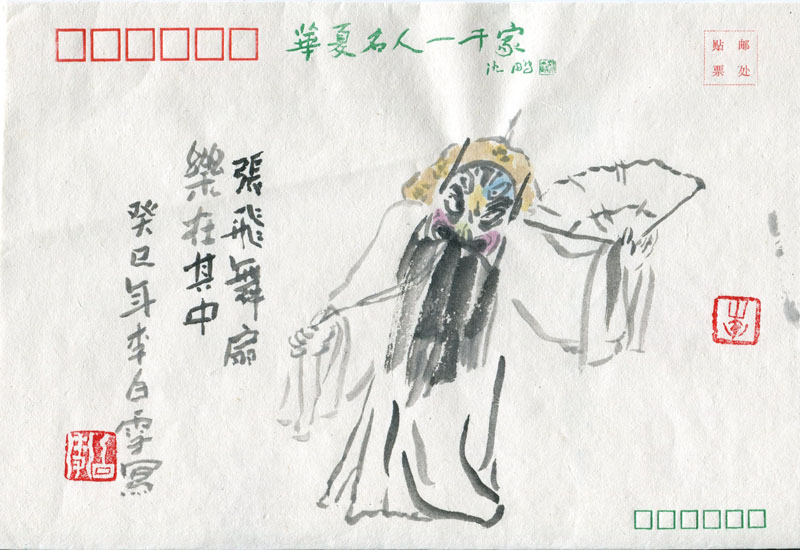 華夏名人一千家
沈鹏
贴邮
票处
張飛舞扇
樂在其中
癸巳年李白雪冩